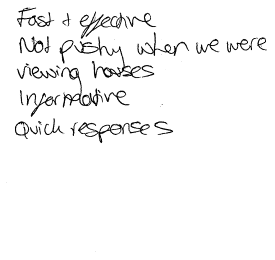 Fast + effective
Not pushy when we were
viewing houses
Informative
Quick responses